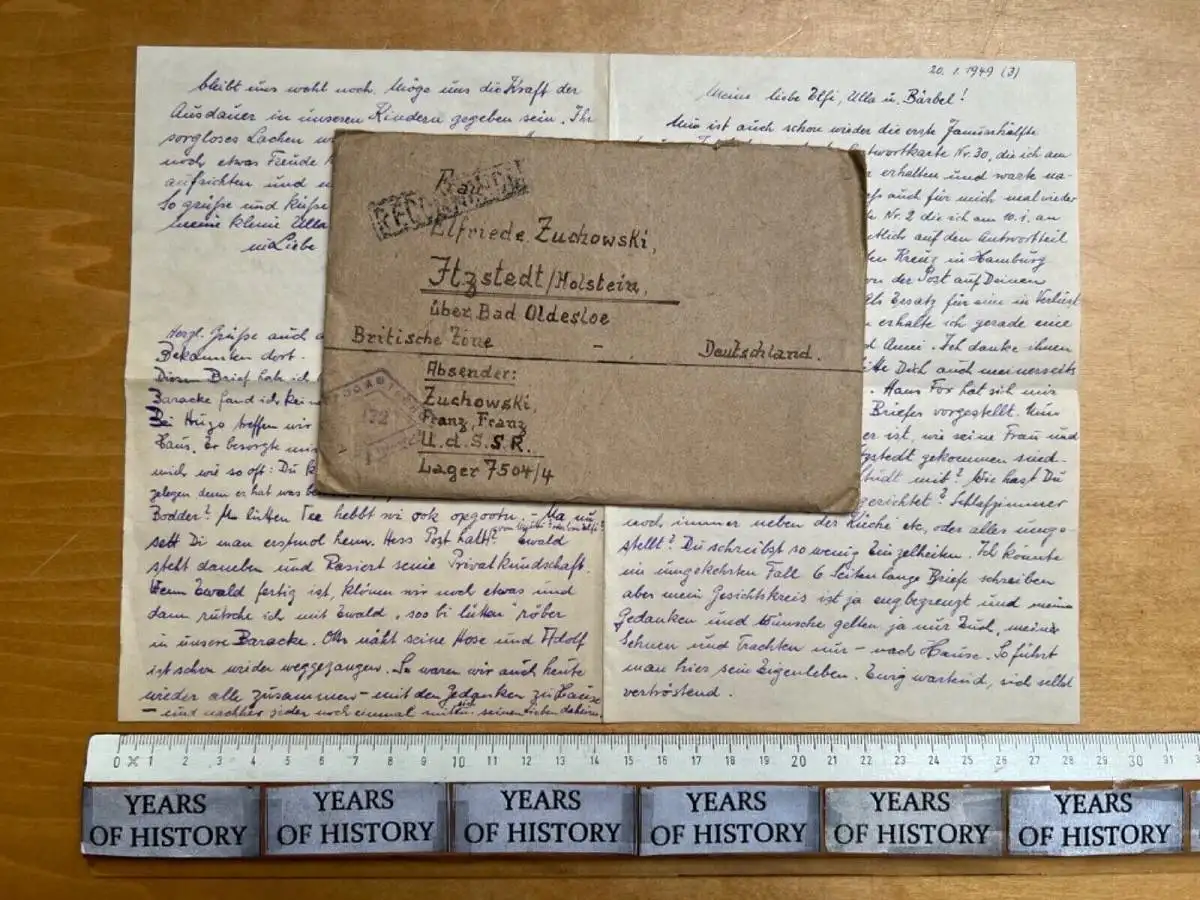 bleibt uns wohl noch. Möge uns die Kraft der
Ausdauer in unseren Kindern gegeben sein. Ihr
sorgloses Lachen
noch etwas Freude
aufrichten und
So grüße und küsse
meine kleine Ulla
in Liebe
Herzl. Grüße auch
Bekannten dort.
Diesen Brief hab ich
Baracke fand ich kei
Bei Hugo treffen wir
Haus. Er besorgte
mich wie so oft: Du
gelegen denn er hat was
Bodder? 'N lütten Tee hebbt wi ook opgootn. - Ma nu
sett Di man erstmol henn. Hess Post hatt? Ewald
steht daneben und Rasiert seine Privatkundschaft.
Wenn Ewald fertig ist, klönen wir noch etwas und
dann rutsche ich mit Ewald "sos bi lütten" röber
in unsere Baracke. Otto näht seine Hose und Adolf
ist schon wieder weggegangen. So waren wir auch heute
wieder alle zusammen - mit den Gedanken zu Hause
- und nachher jeder noch einmal mit seinen Lieben daheim.
20.1.1949 (3)
Meine liebe Elfi, Ulla u. Bärbel!
Nun ist auch schon wieder die erste Januarhälfte
Antwortkarte Nr. 30, die ich am
erhalten und warte
auch für mich mal wieder
Nr. 2 die ich am 10.1. an
auf den Antwortteil
Kreuz in Hamburg
von der Post auf Deinen
Als Ersatz für eine in Verlust
erhalte ich gerade eine
Anni. Ich danke ihnen
Dich auch meinerseits
Hans For hat sich mir
Briefes vorgestellt. Nun
er ist, wie seine Frau und
gekommen sind.
mit? Wie hast Du
gerichtet? Schlafzimmer
noch immer neben der Küche etc. oder alles umge-
stellt? Du schreibst so wenig Einzelheiten. Ich könnte
im umgekehrten Fall 6 Seiten lange Briefe schreiben
aber mein Gesichtskreis ist ja engbegrenzt und meine
Gedanken und Wünsche gelten ja nur Euch, meine
Sehnen und Trachten nur - nach Hause. So führt
man hier sein Eigenleben. Ewig wartend, sich selbst
vertröstend.
Frau
Elfriede Zuchowski,
Itzstedt/Holstein,
über Bad Oldesloe
Britische Zone - Deutschland.
Absender:
Zuchowski,
Franz, Franz
U.d.S.S.R.
Lager 7504/4
0 1 2 3 4 5 6 7 8 9 10 11 12 13 14 15 16 17 18 19 20 21 22 23 24 25 26 27 28 29 30 31
YEARS OF HISTORY
YEARS OF HISTORY
YEARS OF HISTORY
YEARS OF HISTORY
YEARS OF HISTORY
YEARS OF HISTORY